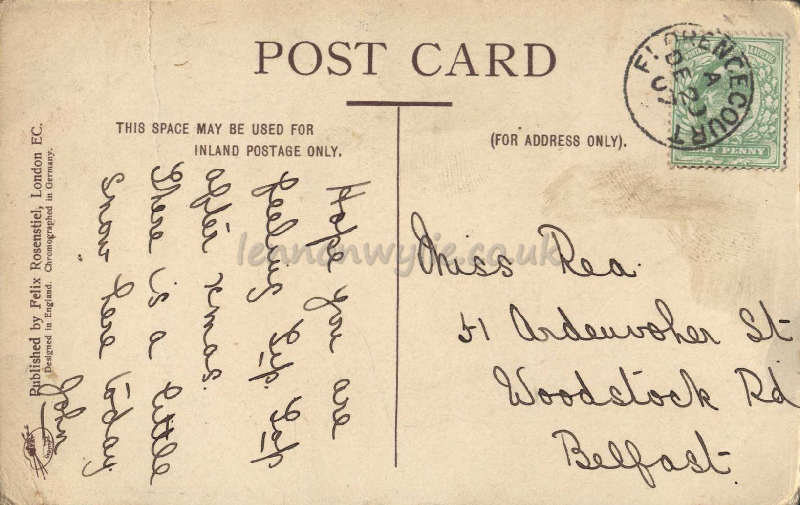 POST CARD
THIS SPACE MAY BE USED FOR
INLAND POSTAGE ONLY.
(FOR ADDRESS ONLY).
FLORENCECOURT
A
DE 29
07
HALF PENNY
Hope you are
feeling Tip Top
after xmas.
There is a little
snow here today.
John
Miss Rea.
51 Ardenvoher St
Woodstock Rd
Belfast.
Published by Felix Rosenstiel, London EC.
Designed in England. Chromographed in Germany.
lennonwylie.co.uk